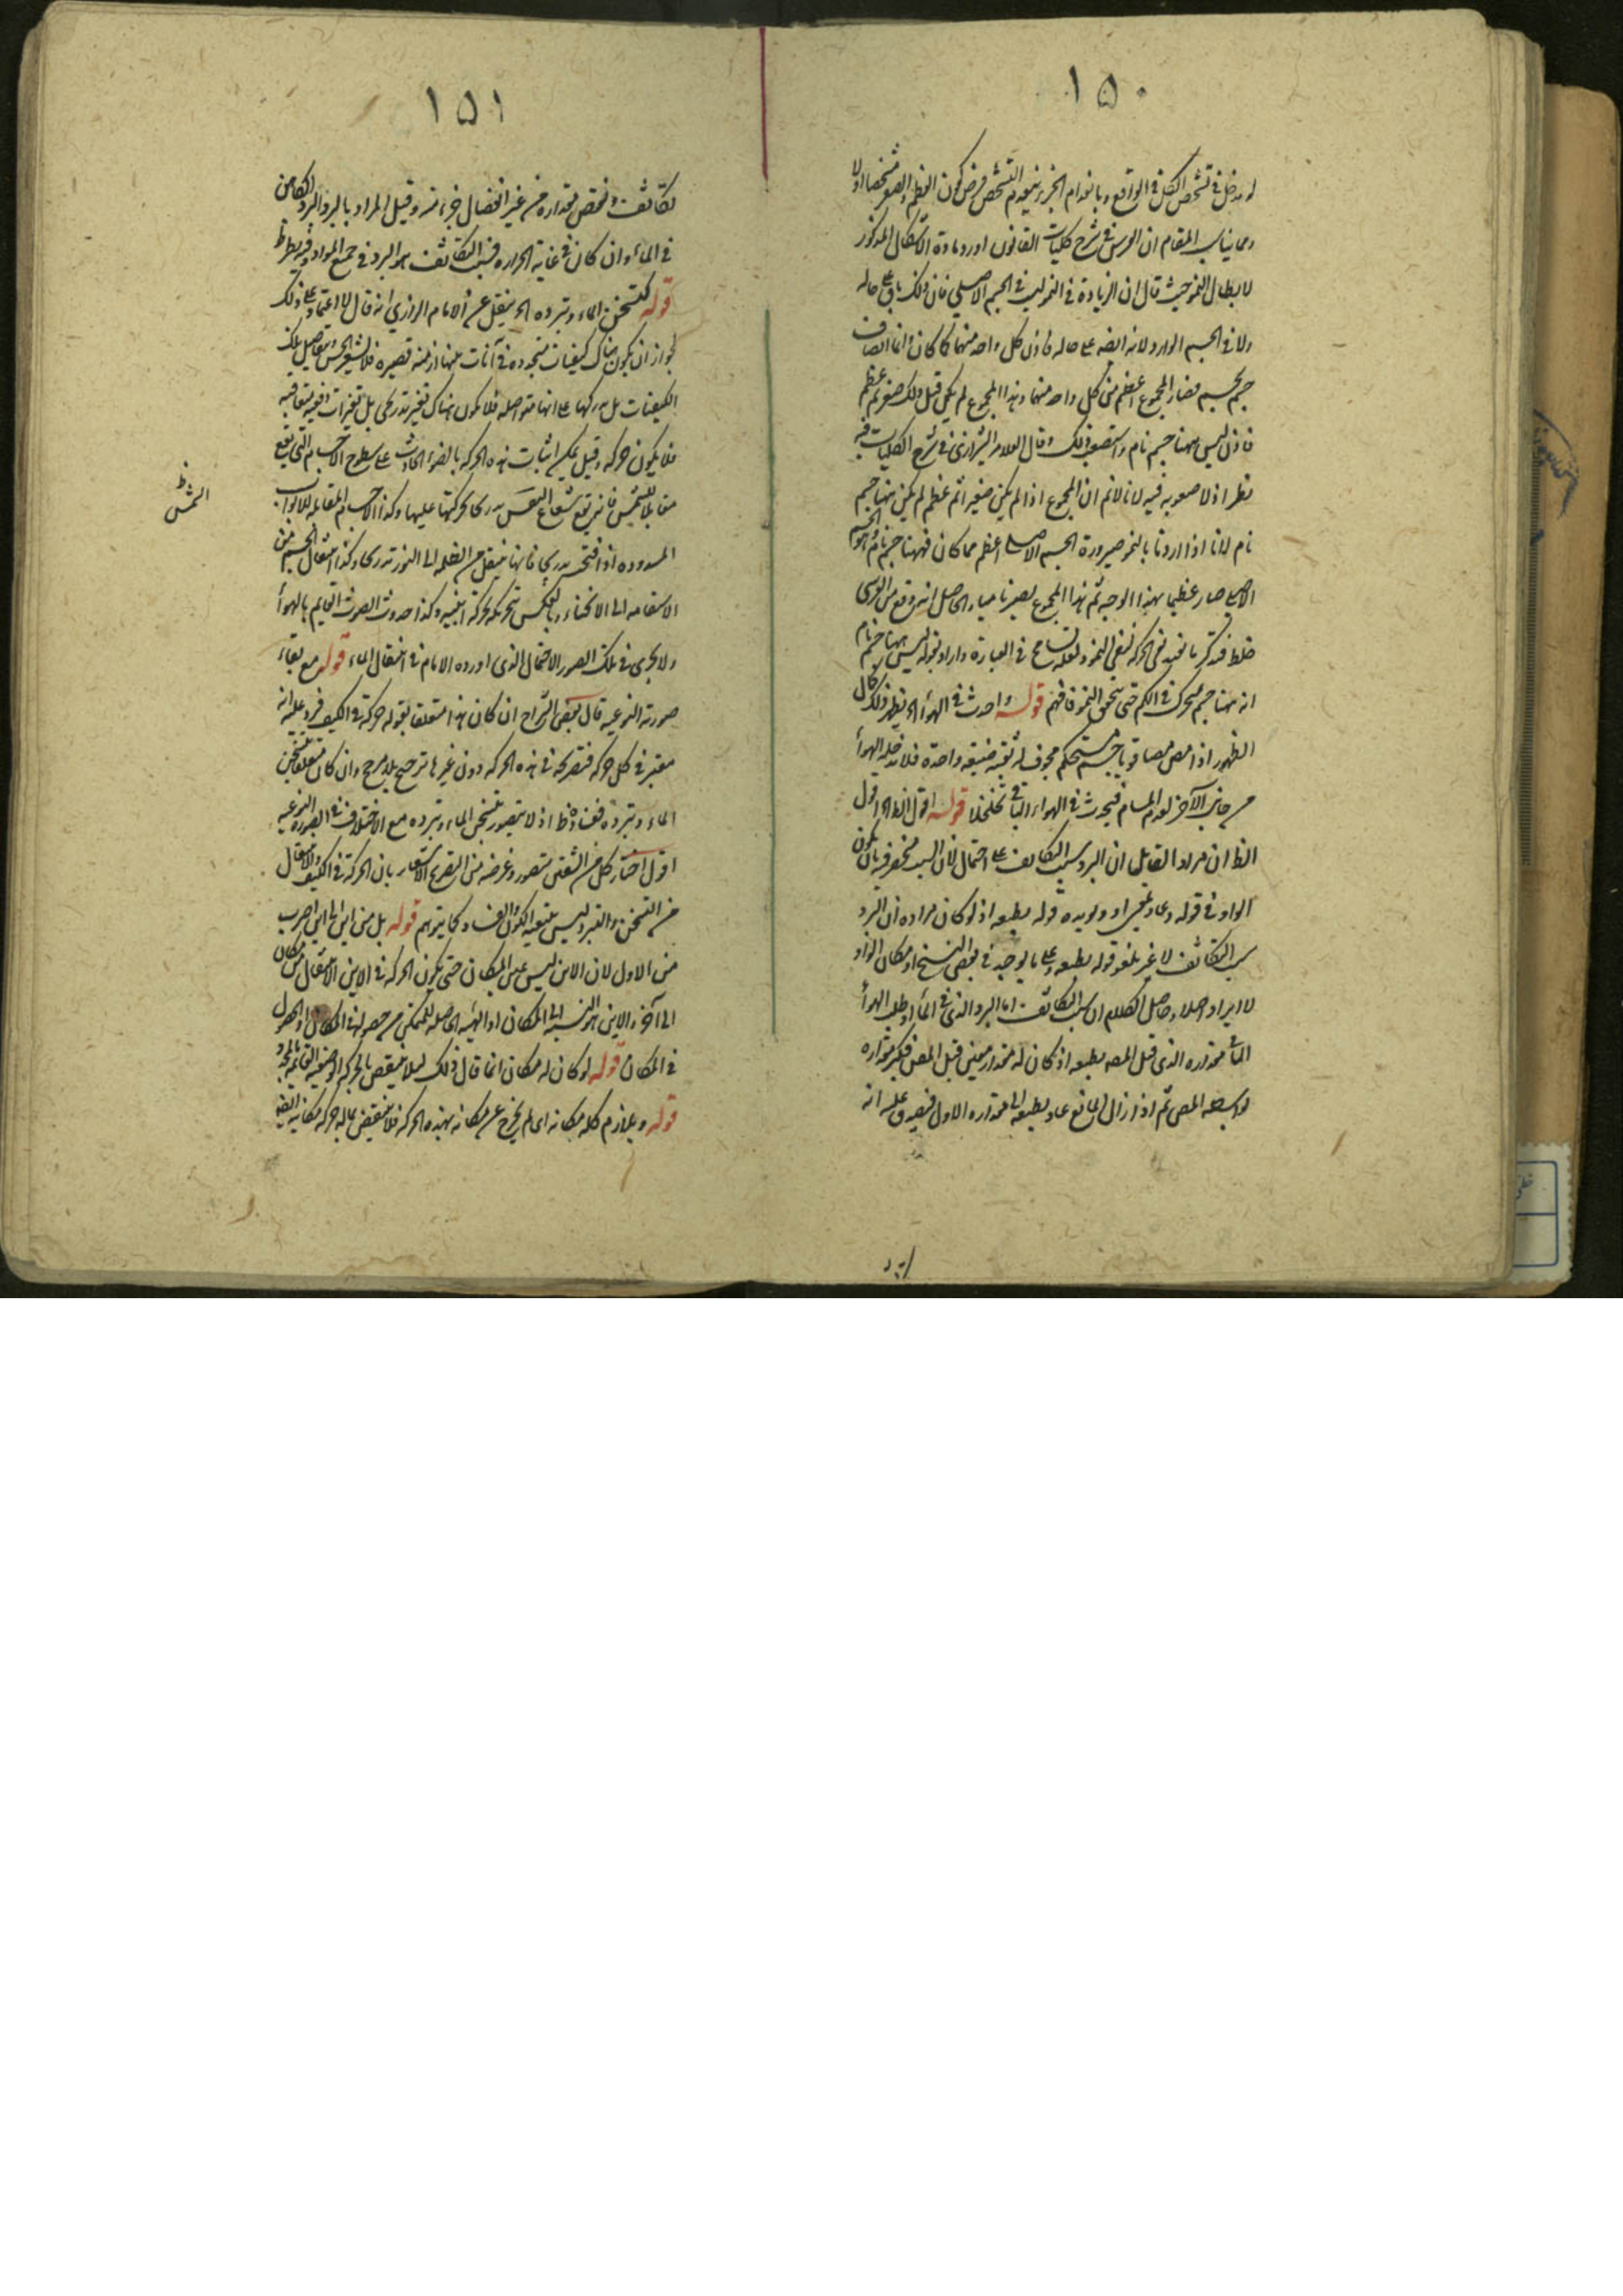 ١٥٠
له مدخل في تشخص الكل في الواقع وبانعدام الجزء ينعدم التشخص فرض كون العظم والصغر مشخصا اولا
ومما يناسب المقام ان القرشي في شرح كليات القانون اورد مادة الاشكال المذكور
لابطال النمو حيث قال ان الزيادة في النمو ليست في الجسم الاصلي فان ذلك باق على حاله
ولا في الجسم الوارد لانه ايضه على حاله فاذن كل واحد منهما كما كان وانما انضاف
جسم بجسم فصار المجموع اعظم من كل واحد منهما وهذا المجموع لم يكن قبل ذلك صغر ثم عظم
فاذن ليس ههنا جسم نام واستصعب ذلك وقال العلامه الشيرازي في شرح الكليات فيه
نظر اذ لا صعوبه فيه لانا لانم ان المجموع اذا لم يكن صغيرا ثم عظم لم يكن ههنا جسم
نام لانا اذا اردنا بالنمو صيرورة الجسم الاصلي اعظم مما كان فههنا جسم نام هو الجسم
الاصلي صار عظيما بهذا الوجه ثم هذا المجموع يصير ناميا والحاصل انه وقع من القرشي
خلط فتذكر ما نفيد نفي الحركه لنفي النمو ولعله تسامح في العبارة واراد بقوله ليس ههنا جسم نام
انه ههنا جسم متحرك في الكم حتى يتحقق النمو فافهم قوله واحدث في الهوأ الخ يظهر ذلك كمال
الظهور اذا مص مصا قويا جسم مستحكم مجوف له ثقبة ضيقه واحدة فلا يدخله الهوأ
من جانب الآخر لعدم المسام فيحدث في الهواء الباقي تخلخلا قوله اقول الظ الخ اقول
الظ ان مراد القايل ان البرد سبب التكاثف على احتمال لان السبب منحصر فيه بان يكون
الواو في قوله وعاد بمعنى او ويويده قوله بطبعه اذ لو كان مراده ان البرد
سبب التكاثف لا غير يلغو قوله بطبعه وعلى ما يوجد في بعض النسخ او مكان الواو
لا ايراد اصلا وحاصل الكلام ان سبب التكاثف اما البرد الذي في المأ او طلب الهوأ
المأ مقداره الذي قبل المصه بطبعه اذ كان له مقدار معين قبل المص فكبر مقداره
بواسطه المص ثم اذا زال المانع عاد بطبعه الى مقداره الاول فيصدق عليه انه
١٥١
تكاثف ونقص مقداره من غير انفصال جزء منه وقيل المراد بالبرد البرد الكامن
في المأ وان كان في غاية الحراره فسبب التكاثف هو البرد في جميع المواد وفيه نظر ظ
قوله كتسخن الماء وتبرده الخ ينقل عن الامام الرازي انه قال لا اعتماد على ذلك
لجواز ان يكون هناك كيفيات متجدده في آنات بينها ازمنه قصيره فلا يشعر الحس بتفاصيل تلك
الكيفيات بل يدركها على انها متواصله فلا يكون هناك تغير تدريجي بل تغيرات دفعيه متعاقبه
فلا يكون حركه وقيل يمكن اثبات هذه الحركه بالضوء الحادث على سطوح الاجسام التي يقع
مقابلا للشمس فانه يقع شعاع الشمس تدريجا لحركتها عليها وكذا الاجسام المقابله للابواب
المسدوده اذا فتحت بتدريج فانها ينتقل من الظلمه الى النور تدريجا وكذا انتقال الجسم من
الاستقامه الى الانحناء وبالعكس بتحريكه حركة اينيه وكذا حدوث الصوت القايم بالهوأ
ولا يجري في تلك الصور الاحتمال الذي اورده الامام في انتقال الماء قوله مع بقاء
صورته النوعيه قال بعض الشراح ان كان هذا متعلقا بقوله حركة في الكيف فيرد عليه انه
معتبر في كل حركه فتصريحه في هذه الحركه دون غيرها ترجيح بلا مرجح وان كان متعلقا بتسخن
الماء وتبرده ففساده ظ اذ لا يتصور تسخن الماء وتبرده مع الاختلاف في الصوره النوعيه
اقول اختيار كل من الشقين متصور وغرضه من التصريح الاشعار بان الحركة في الكيف والانتقال
من التسخن والتبرد ليس بتبعيه الكون والفساد كما يتوهم قوله بل من اين الى اين اضرب
من الاول لان الاين ليس عين المكان حتى يكون الحركه في الاين الانتقال من مكان
الى آخر والاين هو النسبه الى المكان او الهيئه الحاصله للمتمكن من حصوله في المكان او الحصول
في المكان قوله لو كان له مكان انما قال ذلك ليلا ينتقض بالحركه الوضعيه القايمه بالمحدد
قوله ويلازم كله مكانه اى لم يخرج عن مكانه بهذه الحركه فلا ينتقض بماله حركه مكانيه ايضه
الشمس ظ